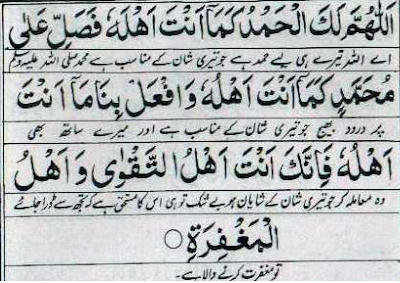 اَللّٰهُمَّ لَكَ الْحَمْدُ كَمَآ اَنْتَ اَهْلُهٗ فَصَلِّ عَلٰى
اے اللہ تیرے ہی لیے حمد ہے جو تیری شان کے مناسب ہے محمد صلی اللہ علیہ وسلم
مُحَمَّدٍ كَمَآ اَنْتَ اَهْلُهٗ وَافْعَلْ بِنَا مَآ اَنْتَ
پر درود بھیج جو تیری شان کے مناسب ہے اور میرے ساتھ بھی
اَهْلُهٗ فَاِنَّكَ اَنْتَ اَهْلُ التَّقْوٰى وَ اَهْلُ
وہ معاملہ کر جو تیری شان کے شایاں ہو بے شک تو ہی اس کا مستحق ہے کہ تجھ سے ڈرا جائے
الْمَغْفِرَةِ ○
تو مغفرت کرنے والا ہے۔